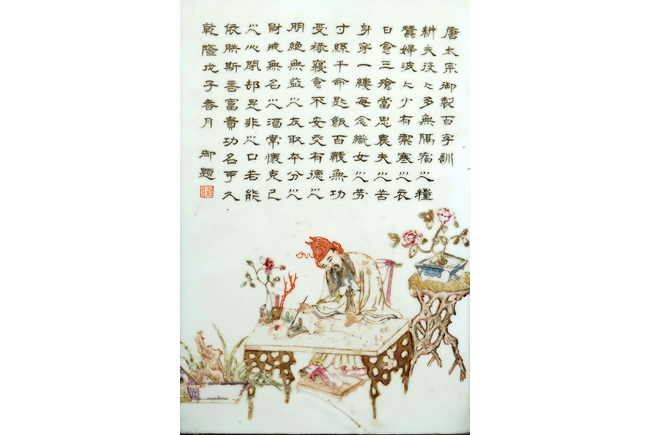 唐太宗御製百字訓
耕夫役々多無隔宿之糧
蠶婦波々少有禦寒之衣
日食三飧當思農夫之苦
身穿一縷每念織女之勞
寸絲千命匙飯百鞭無功
受祿寢食不安交有德之
朋絕無益之友取本分之
財戒無名之酒常懷克己
之心閉却是非之口若能
依朕斯言富貴功名可久
乾隆戊子香月 御題